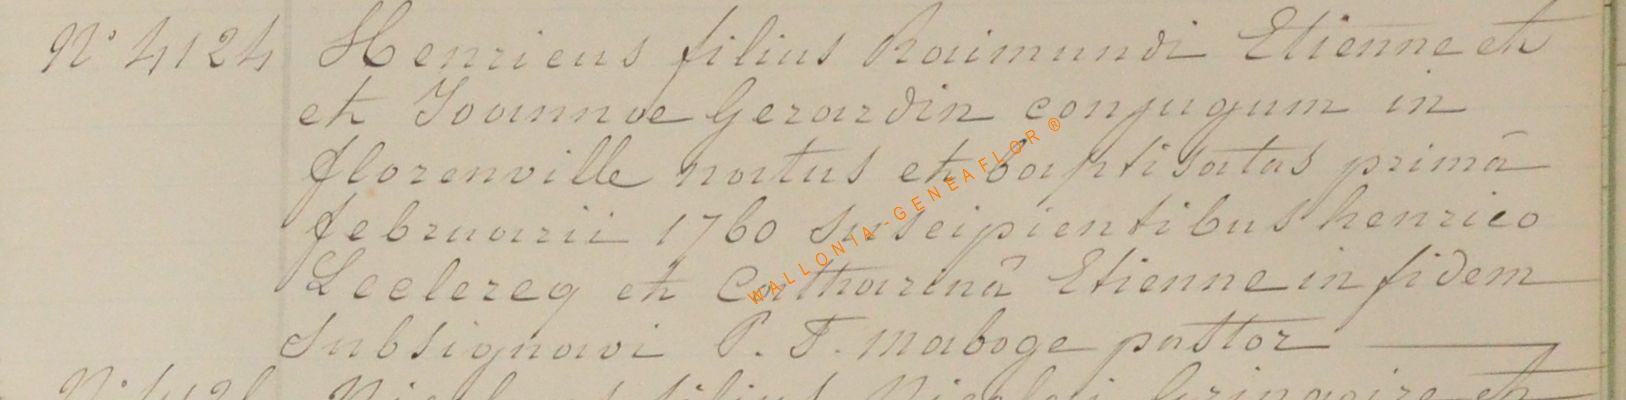 N° 4124 Henricus filius Raimundi Etienne et
et Joannae Gerardin conjugum in
florenville natus et baptisatas primâ
februarii 1760 suscipientibus henrico
Leclercq et Catharinâ Etienne in fidem
subsignavi P. F. maboge pastor
WALLONIA-GENEAFLOR ®
filius Nicolai